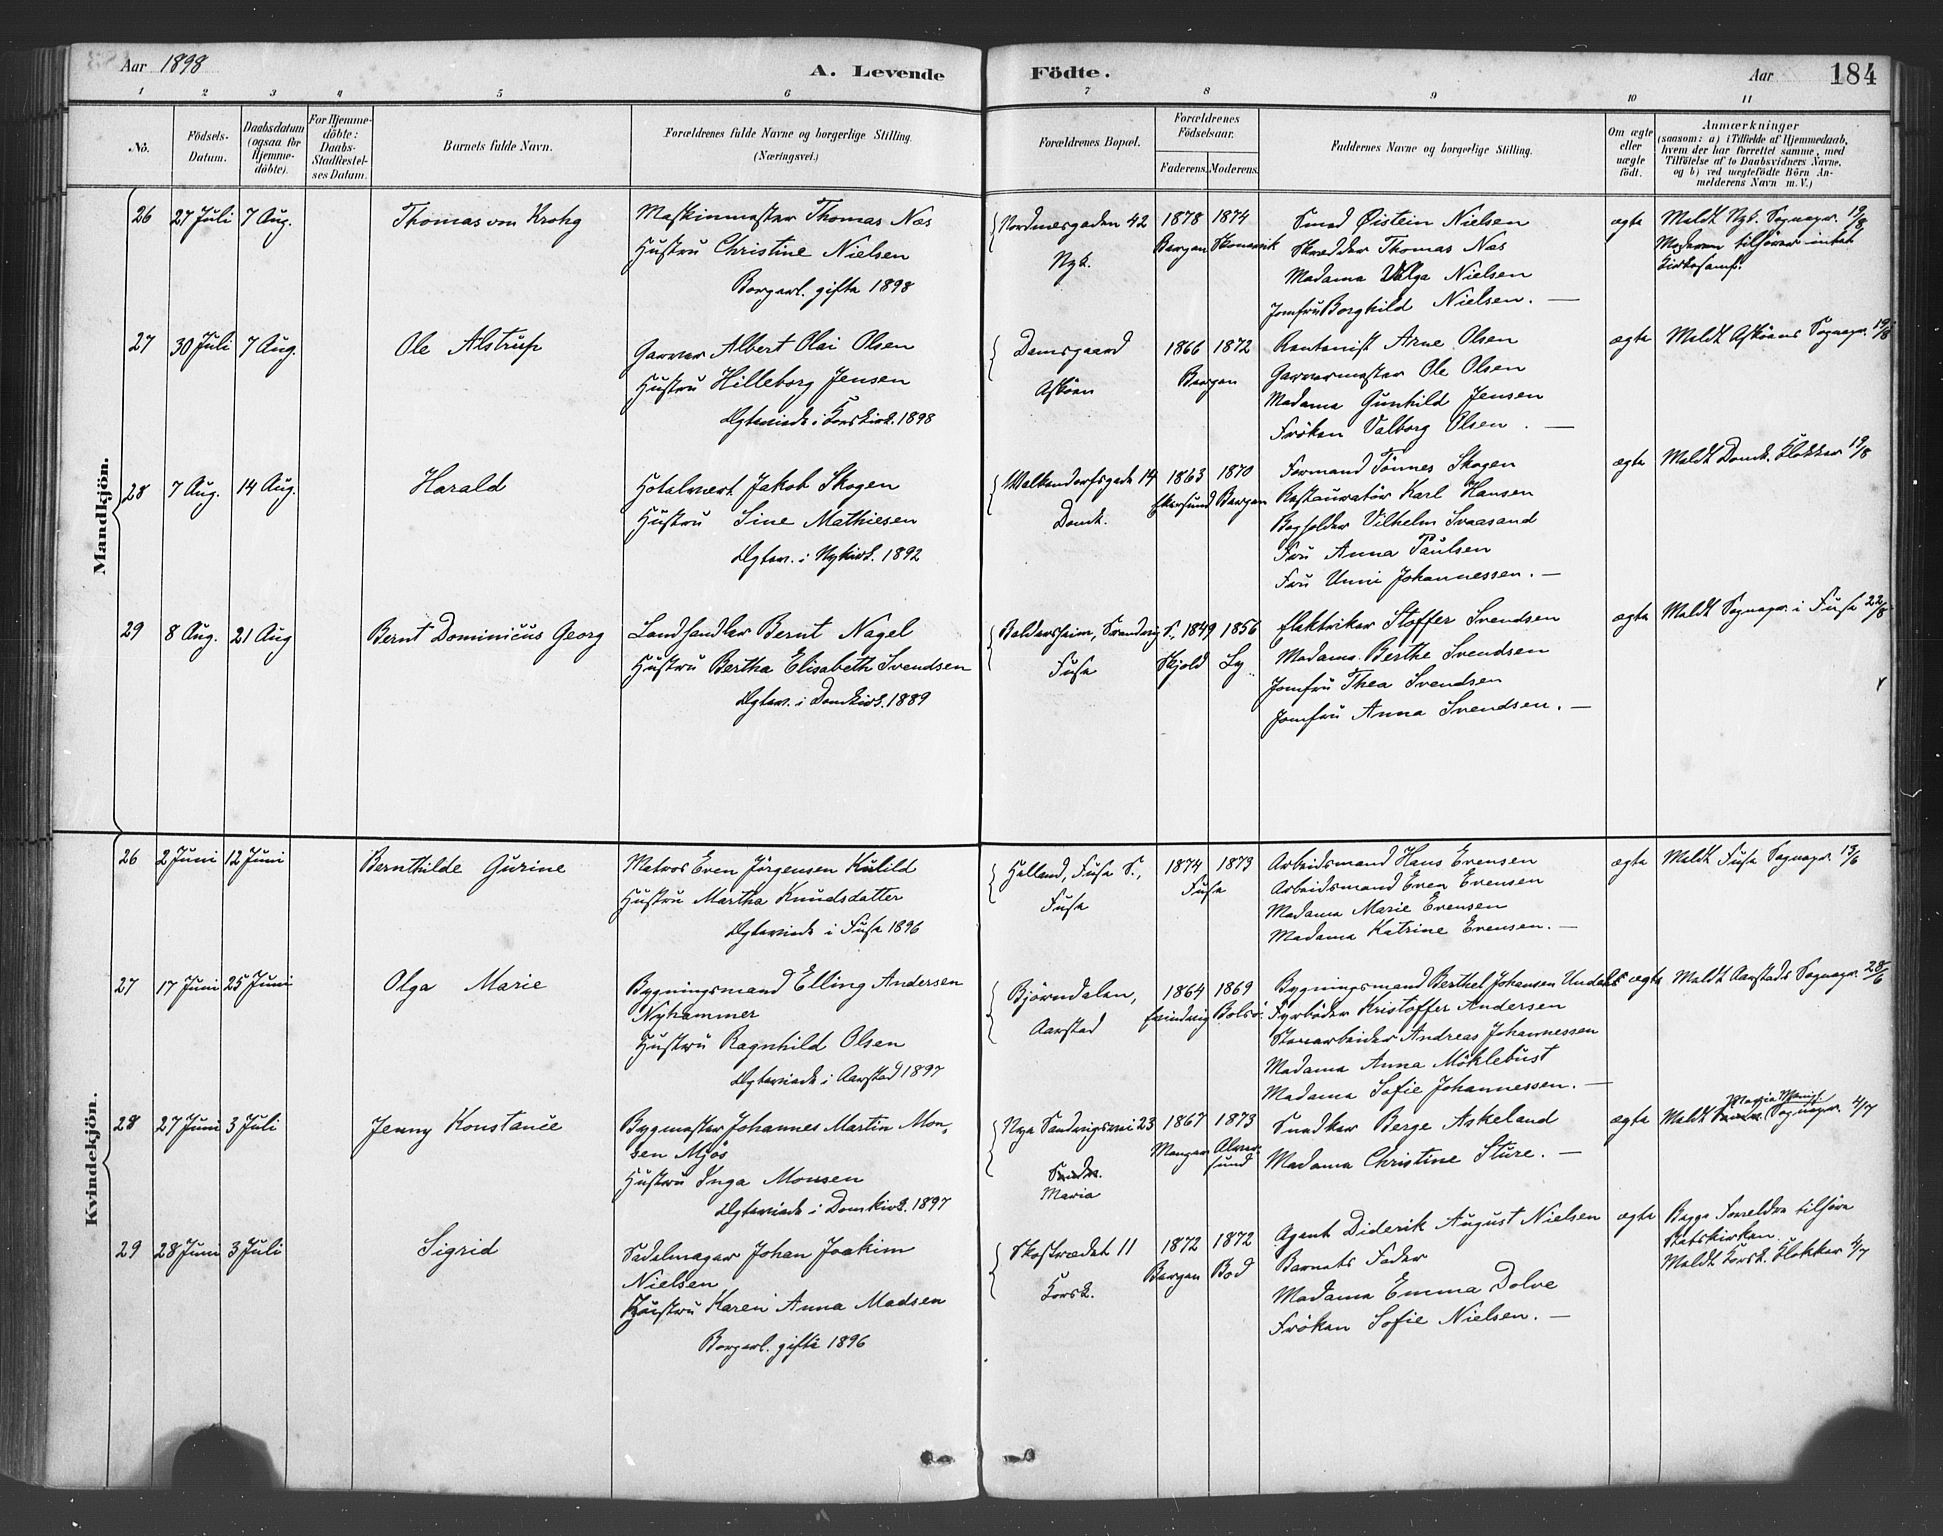 Aar 1898
A. Levende Födte.
Aar
184
1 2 3 4 5 6 7 8 9 10 11
No.
Födsels-Datum.
Daabsdatum (ogsaa for Hjemme-döbte).
For Hjemme-döbte: Daabs-Stadfæstel-ses Datum.
Barnets fulde Navn.
Forældrenes fulde Navne og borgerlige Stilling. (Næringsvei.)
Forældrenes Bopæl.
Forældrenes Födselsaar.
Faderens. Moderens.
Faddernes Navne og borgerlige Stilling.
Om ægte eller uægte födt.
Anmærkninger
(saasom: a) i Tilfælde af Hjemmedaab, hvem der har forrettet samme, med Tilföielse af to Daabsvidners Navne, og b) ved uægtefödte Börn An-melderens Navn m. V.)
Mandkjön.
26 27 Juli 7 Aug. Thomas von Krohg
Maskinmester Thomas Næs
Hustru Christine Nielsen
Borgerl. gifte 1898
Nordnæsgaden 42
Nyk.
1878 1874
Bergen Skonevik
Smed Øistein Nielsen
Skrædder Thomas Næs
Madame Valga Nielsen
Jomfru Borghild Nielsen. —
ægte
Meldt Nyk. Sognepr. 19/8
Moderen tilhører intet
Kirkesamf.
27 30 Juli 7 Aug. Ole Alstrup
Garver Albert Olai Olsen
Hustru Hilleborg Jensen
Ægteviede i Korskirk. 1898
Damsgaard
Askøen
1866 1872
Bergen
Rentenist Arne Olsen
Garvermester Ole Olsen
Madame Gunhild Jensen
Frøken Valborg Olsen. —
ægte
Meldt Askøens Sognepr. 19/8
28 7 Aug. 14 Aug. Harald
Hotelvært Jakob Skogen
Hustru Sine Mathiesen
Ægtev. i Nykirk. 1892
Walkendorfsgade 14
Domk.
1863 1870
Ekersund Bergen
Formand Tönnes Skogen
Restauratör Karl Hansen
Bogholder Vilhelm Svaasand
Fru Anna Paulsen
Fru Unni Johannessen. —
ægte
Meldt Domk. Klokker 19/8
29 8 Aug. 21 Aug Bernt Dominicus Georg
Landhandler Bernt Nagel
Hustru Bertha Elisabeth Svendsen
Ægtev. i Domkirk. 1889
Baldersheim, Strandvig S.,
Fuse
1849 1856
Skjold
Elektriker Stoffer Svendsen
Madame Berthe Svendsen
Jomfru Thea Svendsen
Jomfru Anna Svendsen. —
ægte
Meldt Sognepr. i Fuse 22/8
Kvindekjön.
26 2 Juni 12 Juni Bernthilde Gurine
Matros Even Jörgensen Kulild
Hustru Martha Knudsdatter
Ægteviede i Fuse 1896
Helland, Fuse S.,
Fuse
1874 1873
Fuse
Arbeidsmand Hans Evensen
Arbeidsmand Even Evensen
Madame Marie Evensen
Madame Katrine Evensen. —
ægte
Meldt Fuse Sognepr. 13/6
27 17 Juni 25 Juni Olga Marie
Bygningsmand Elling Andersen
Nyhammer
Hustru Ragnhild Olsen
Ægteviede i Aarstad 1897
Björndalen,
Aarstad
1864 1869
Evindvig Bolsö
Bygningsmand Berthel Johansen Undal
Fyrböder Kristoffer Andersen
Stenarbeider Andreas Johannessen
Madame Anna Möklebust
Madame Sofie Johannessen. —
ægte
Meldt Aarstads Sognepr. 28/6
28 27 Juni 3 Juli Jenny Konstance
Bygmester Johannes Martin Mon-
sen Mjös
Hustru Inga Monsen
Ægteviede i Domkirk. 1897
Nye Sandvigsvei 23
Sandv.
Maria
1867 1873
Manger Alver-
sund
Sundker Berge Askeland
Madame Christine Sture. —
ægte
Meldt Sandv. Sognepr. 4/7
29 28 Juni 3 Juli Sigrid
Sadelmager Johan Joakim
Nielsen
Hustru Karen Anna Madsen
Borgerl. gifte 1896
Skostrædet 11
Korsk.
1872 1872
Bergen Bod
Agent Diderik August Nielsen
Barnets Fader
Madame Emma Dolve
Frøken Sofie Nielsen. —
ægte
Begge Forældre tilhøre
Statskirken.
Meldt Korsk. Klokker 4/7